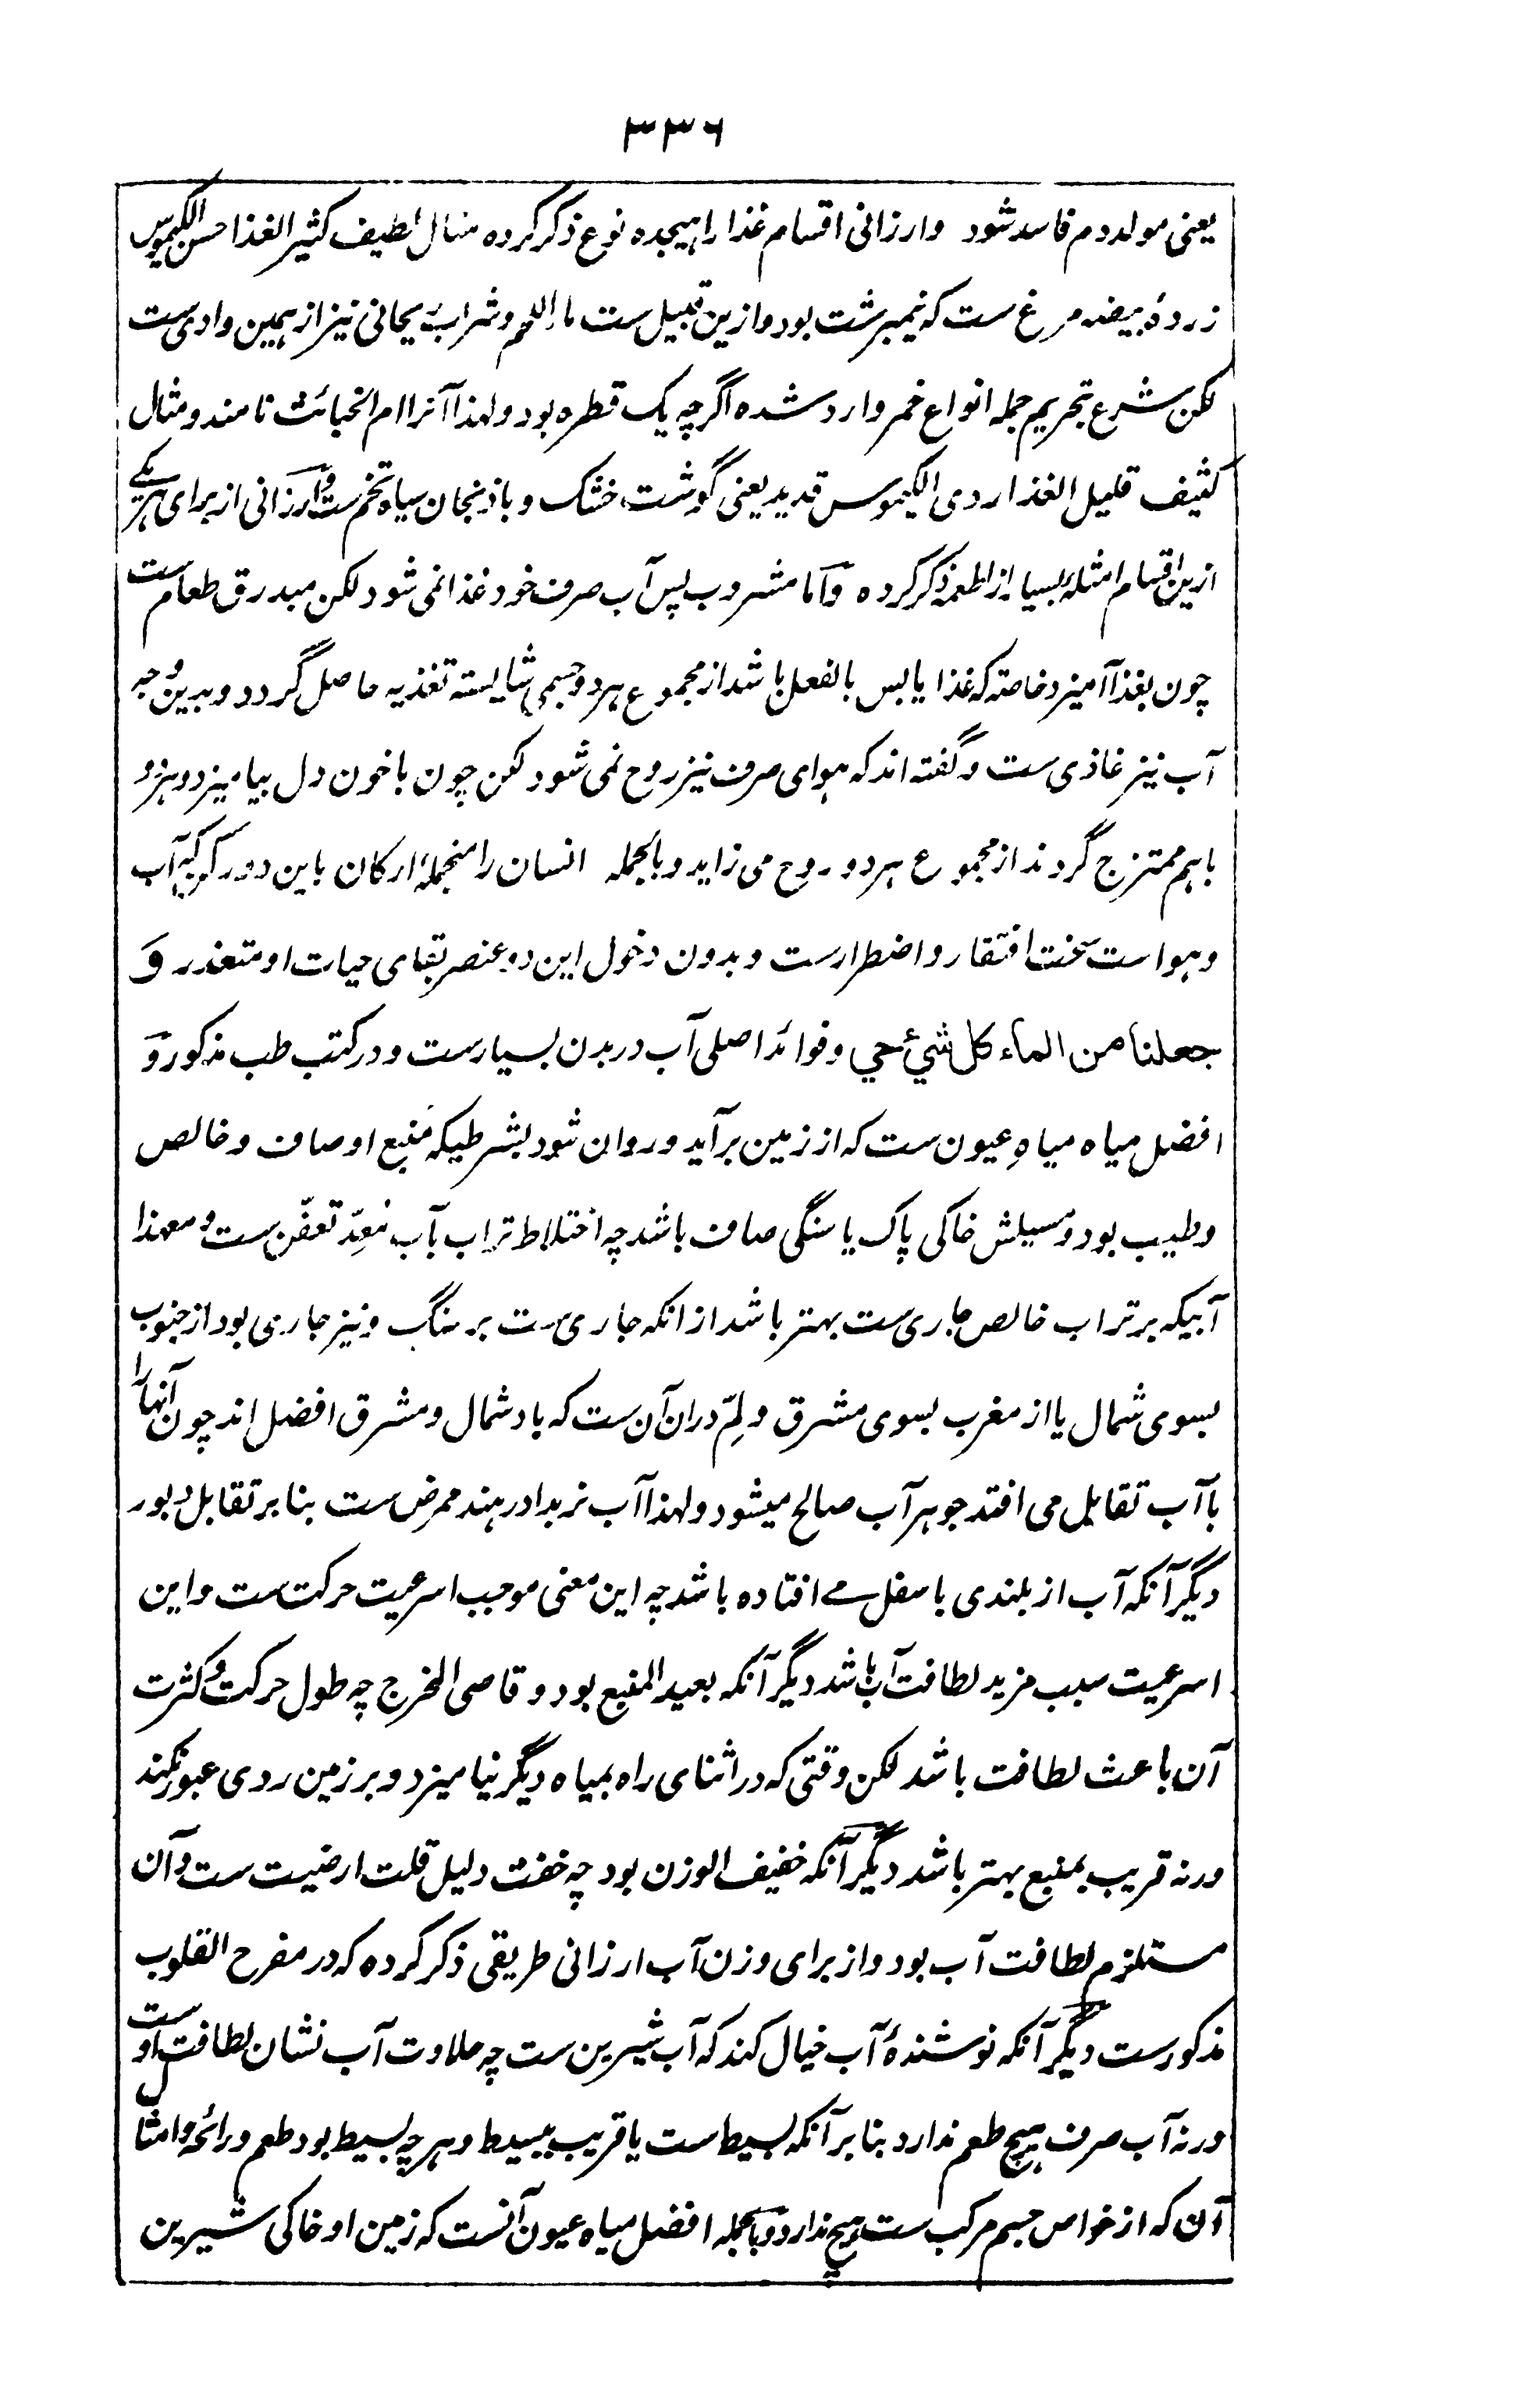 ۳۳۶
یعنی مولد دم فاسد شود وارزانی اقسام غذا را هیجده نوع ذکر کرده مثال لطیف کثیر الغذا حسن الکیموس
زردهٔ بیضه مرغ ست که نیمبرشت بود وازین قبیل ست ماء اللحم وشراب ریحانی نیز از همین وادی ست
لکن شرع بتحریم جمله انواع خمر وارد شده اگرچه یک قطره بود ولهذا آنرا ام الخبائث نامند ومثال
کثیف قلیل الغذا ردی الکیموس قدید یعنی گوشت خشک وباذنجان سیاه تخم ست وارزانی از برای هر یکے
ازین اقسام امثلهٔ بسیار از اطعمه ذکر کرده واما مشروب پس آب صرف خود غذا نمی شود لکن مبدرق طعام ست
چون بغذا آمیزد خاصته که غذا یابس بالفعل باشد از مجموع هر دو جسمی شایسته تغذیه حاصل گردد وبدین وجه
آب نیز غاذی ست وگفته اند که هوای صرف نیز روح نمی شود لکن چون با خون دل بیامیزد وهر دو
باهم ممتزج گردند از مجموع هر دو روح می زاید وبالجمله انسان را منجملهٔ ارکان باین دو رکن که آب
وهواست سخت افتقار واضطرارست وبدون دخول این دو عنصر بقای حیات او متعذر وَ
جعلنا من الماء کل شيءٍ حي وفوائد اصلی آب در بدن بسیارست ودر کتب طب مذکور وَ
افضل میاه میاهِ عیون ست که از زمین برآید وروان شود بشرطیکه منبع او صاف وخالص
وطیب بود ومسیلش خاکی پاک یا سنگی صاف باشد چه اختلاط تراب بآب مُعِدّ تعفّن ست ومعهذا
آبیکه بر تراب خالص جاری ست بهتر باشد از انکه جاری ست بر سنگ ونیز جاری بود از جنوب
بسوی شمال یا از مغرب بسوی مشرق ولِمّ دران آن ست که باد شمال ومشرق افضل اند چون آنها را
با آب تقابل می افتد جوهر آب صالح میشود ولهذا آب نربدا در هند ممرض ست بنا بر تقابل دبور
دیگر آنکه آب از بلندی باسفل مے افتاده باشد چه این معنی موجب اسرعیت حرکت ست واین
اسرعیت سبب مزید لطافت آب باشد دیگر آنکه بعید المنبع بود وقاصی المخرج چه طول حرکت وکثرت
آن باعث لطافت باشد لکن وقتی که در اثنای راه بمیاه دیگر نیامیزد وبر زمین ردی عبور نکند
ورنه قریب بمنبع بهتر باشد دیگر آنکه خفیف الوزن بود چه خفت دلیل قلت ارضیت ست وآن
مستلزم لطافت آب بود واز برای وزن آب ارزانی طریقی ذکر کرده که در مفرح القلوب
مذکورست دیگر آنکه نوشندهٔ آب خیال کند که آب شیرین ست چه حلاوت آب نشان لطافت اوست
ورنه آب صرف هیچ طعم ندارد بنا بر آنکه بسیط ست یا قریب ببسیط وهرچه بسیط بود طعم ورائحه وامثال
آن که از خواص جسم مرکب ست هیچ ندارد وبالجمله افضل میاه عیون آنست که زمین او خاکی شیرین